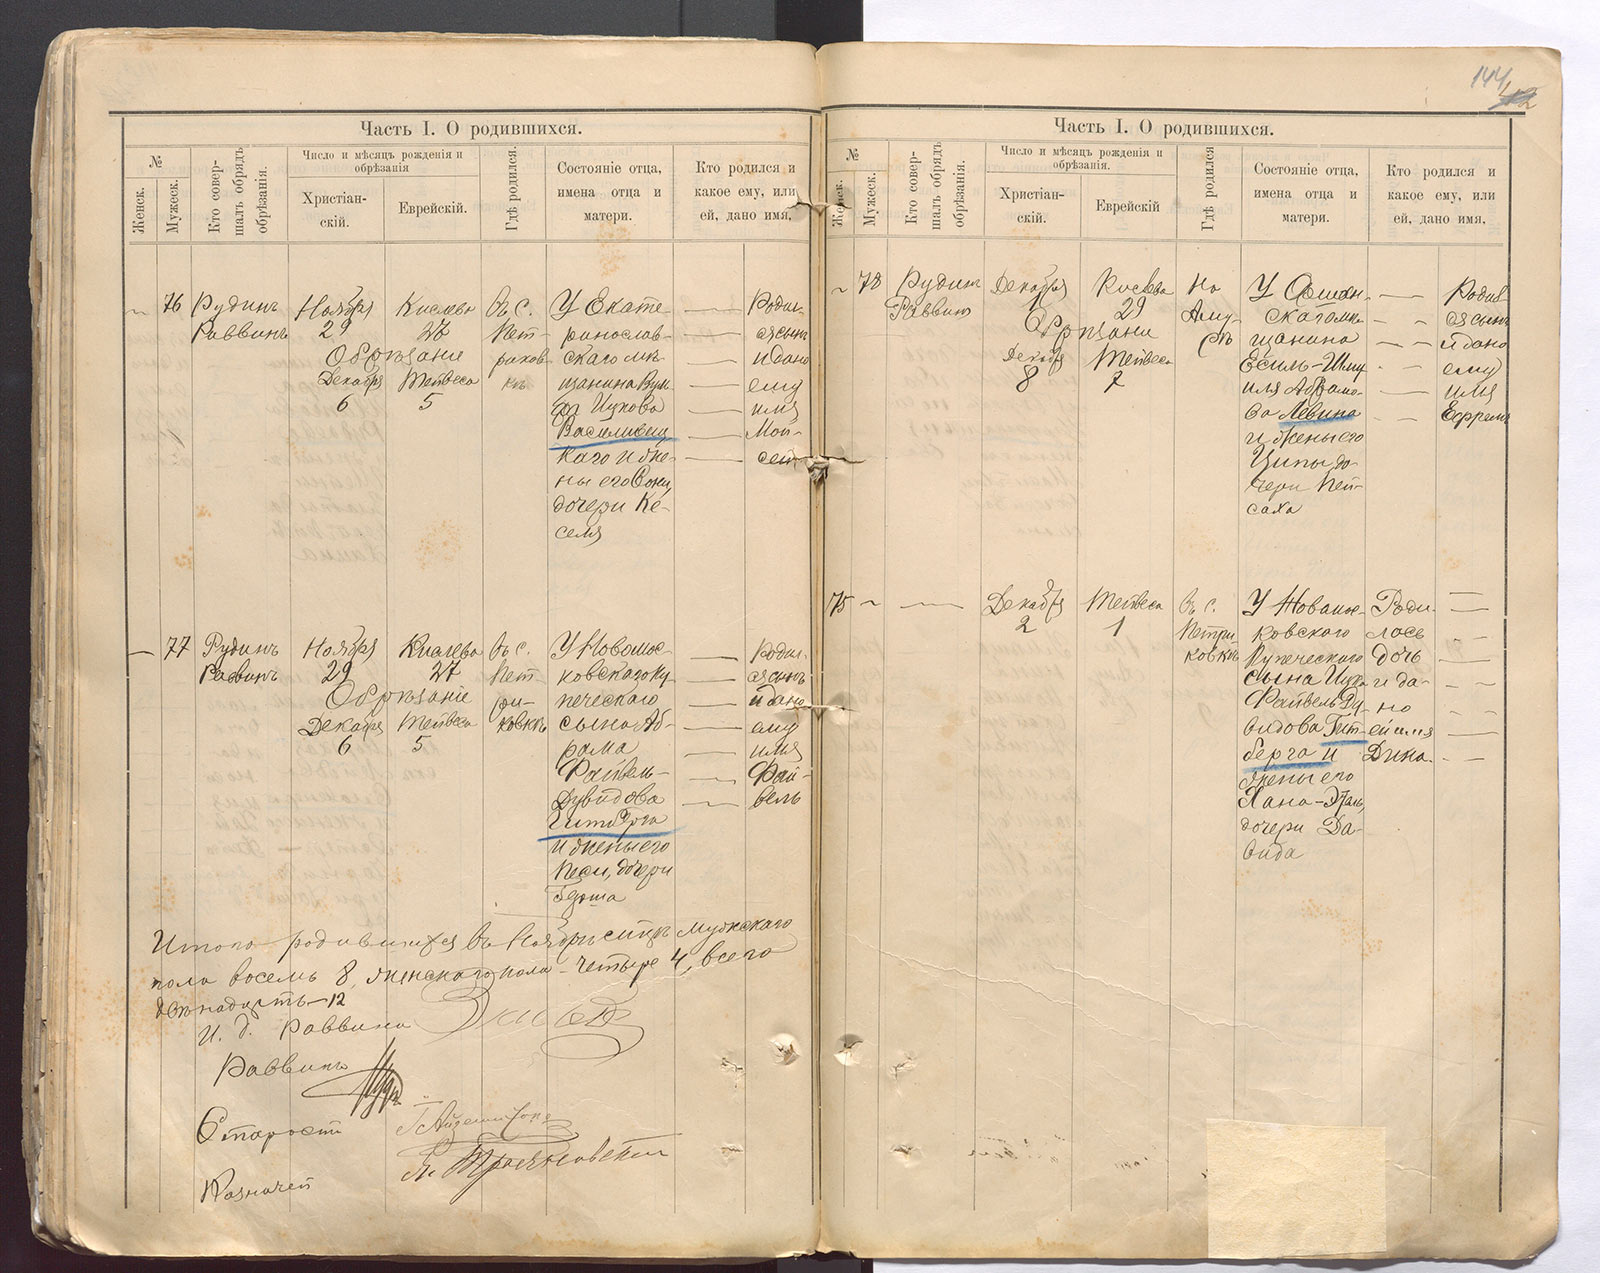 Часть I. О родившихся.
№
Женск.
Мужеск.
Кто совер-
шалъ обрядъ
обрѣзанія.
Число и мѣсяцъ рожденія и
обрѣзанія
Христіан-
скій.
Еврейскій.
Гдѣ родился.
Состояніе отца,
имена отца и
матери.
Кто родился и
какое ему, или
ей, дано имя,
76
Рудинъ
Раввинъ
Ноября
29
Кислева
27
Обрѣзаніе
Декабря
6
Тейвеса
5
Въ с.
Пет-
риков-
кѣ
У Екате-
ринослав-
скаго мѣ-
щанина Вуль-
фа Ицкова
Василивец-
каго и же-
ны его Сони,
дочери Ке-
селя
Родил-
ся сынъ
и дано
ему
имя
Мой-
сей
77
Рудинъ
Раввинъ
Ноября
29
Кислева
27
Обрѣзаніе
Декабря
6
Тейвеса
5
Въ с.
Пет-
ри-
ковкѣ
У Новомос-
ковскаго ку-
печескаго
сына Аб-
рама
Файвель-
Дувидова
Гитберга
и жены его
Песи, дочери
Родил-
ся сынъ
и дано
ему
имя
Фай-
вель
Итого родившихся въ Ноябрѣ сихъ мужскаго
пола восемь 8, женскаго пола - четыре 4, всего
двѣнадцать - 12
И. д. Раввина
Раввинъ
Староста
Казначей
144
42
Часть I. О родившихся.
№
Женск.
Мужеск.
Кто совер-
шалъ обрядъ
обрѣзанія.
Число и мѣсяцъ рожденія и
обрѣзанія
Христіан-
скій.
Еврейскій
Гдѣ родился
Состояніе отца,
имена отца и
матери.
Кто родился и
какое ему, или
ей, дано имя,
78
Рудинъ
Раввинъ
Декабря
1
Кислева
29
Обрѣзаніе
Декабря
8
Тейвеса
7
На
Аму-
рѣ
У Ошмян-
скаго мѣ-
щанина
Есиль-Шму-
иля Абрамо-
ва Левина
и жены его
Ципы до-
чери Пей-
саха
Родил-
ся сынъ
и дано
ему
имя
Ефремъ
75
Декабря
2
Тейвеса
1
Въ с.
Петри-
ковкѣ
У Новомос-
ковскаго
купеческаго
сына Ицка
Файвель Ду-
видова Гит-
берга и
жены его
Хана-Эталь,
дочери Да-
вида
Роди-
лась
дочь
и да-
но
ей имя
Дина